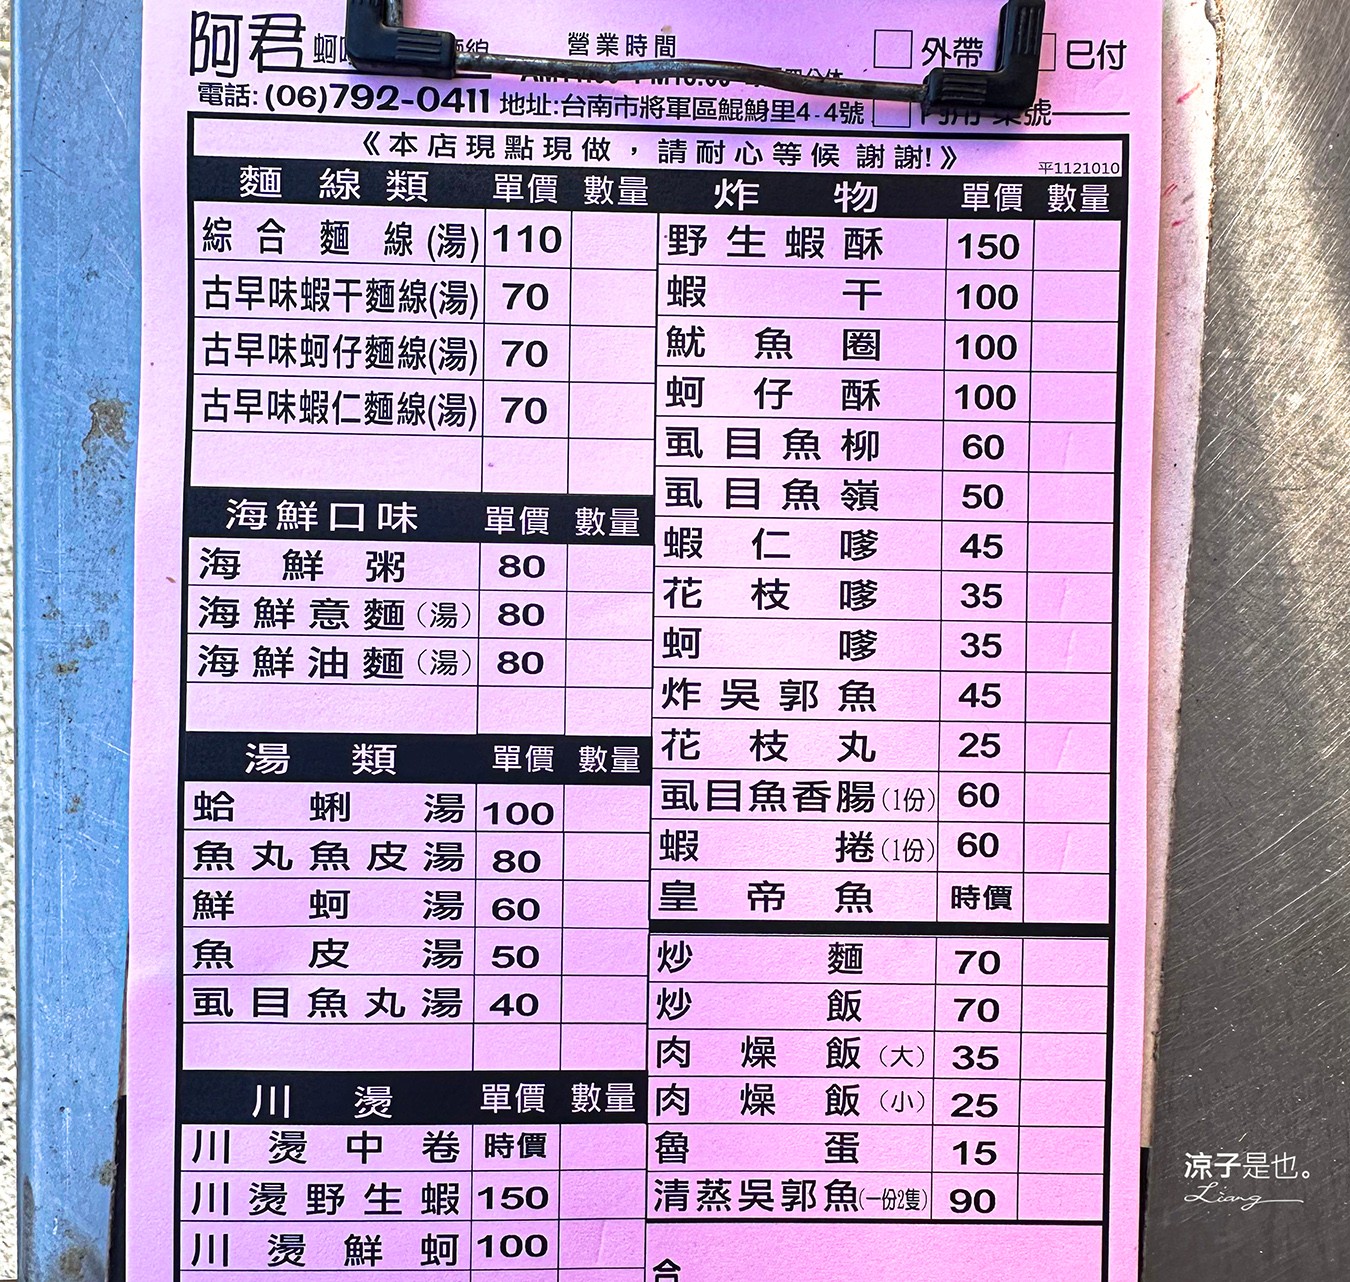 阿君
營業時間
外帶
已付
電話:(06)792-0411 地址:台南市將軍區鯤鯓里4-4號
《本店現點現做,請耐心等候 謝謝!》
平1121010
麵線類 單價 數量
綜合麵線(湯) 110
古早味蝦干麵線(湯) 70
古早味蚵仔麵線(湯) 70
古早味蝦仁麵線(湯) 70
海鮮口味 單價 數量
海鮮粥 80
海鮮意麵(湯) 80
海鮮油麵(湯) 80
湯類 單價 數量
蛤蜊湯 100
魚丸魚皮湯 80
鮮蚵湯 60
魚皮湯 50
虱目魚丸湯 40
川燙 單價 數量
川燙中卷 時價
川燙野生蝦 150
川燙鮮蚵 100
炸物 單價 數量
野生蝦酥 150
蝦干 100
魷魚圈 100
蚵仔酥 100
虱目魚柳 60
虱目魚嶺 50
蝦仁嗲 45
花枝嗲 35
蚵嗲 35
炸吳郭魚 45
花枝丸 25
虱目魚香腸(1份) 60
蝦捲(1份) 60
皇帝魚 時價
炒麵 70
炒飯 70
肉燥飯(大) 35
肉燥飯(小) 25
魯蛋 15
清蒸吳郭魚(一份2隻) 90
合
涼子是也。
Liang